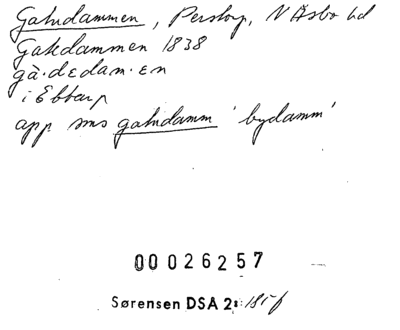 Gatudammen, Perstorp, N Åsbo hd
Gatedammen 1838
gà·dedam·en
i Ebbarp
app sms gatudamm 'bydamm'
00026257
Sørensen DSA 2: